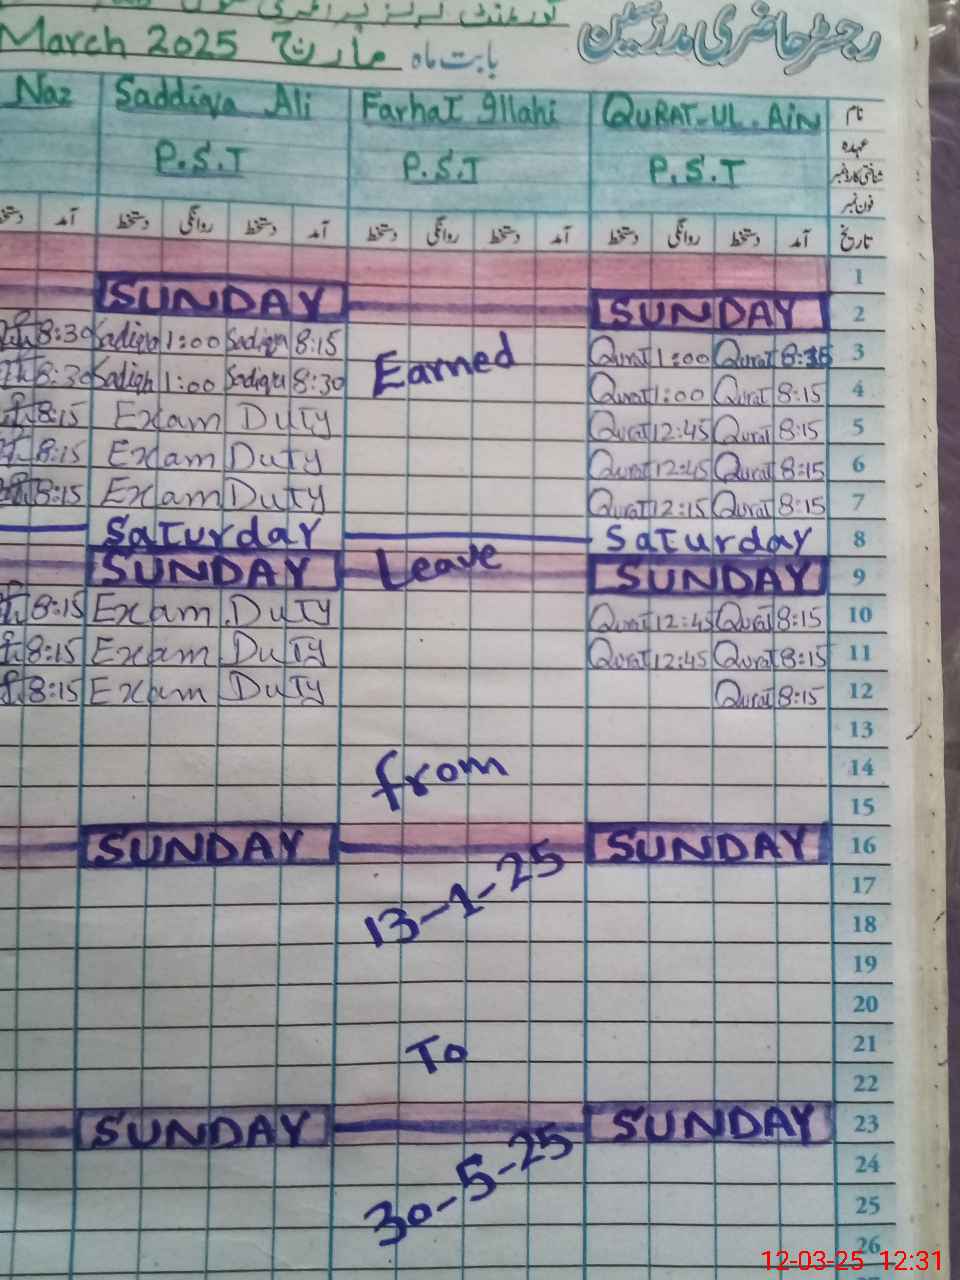 رجسٹر حاضری مدرسین
March 2025 مارچ بابت ماہ
Naz Saddiqa Ali Farhat Illahi QURAT-UL-AIN نام
عہدہ
P.S.T P.S.T P.S.T شناختی کارڈ نمبر
فون نمبر
آمد دستخط روانگی دستخط آمد دستخط روانگی دستخط آمد دستخط روانگی دستخط آمد تاریخ
1
SUNDAY SUNDAY 2
8:30 Sadiqa 1:00 Sadiqa 8:15 Qurat 1:00 Qurat 8:15 3
8:30 Sadiqa 1:00 Sadiqa 8:30 Earned Qurat 1:00 Qurat 8:15 4
8:15 Exam Duty Qurat 12:45 Qurat 8:15 5
8:15 Exam Duty Qurat 12:45 Qurat 8:15 6
8:15 Exam Duty Qurat 12:15 Qurat 8:15 7
Saturday Saturday 8
SUNDAY Leave SUNDAY 9
8:15 Exam Duty Qurat 12:45 Qurat 8:15 10
8:15 Exam Duty Qurat 12:45 Qurat 8:15 11
8:15 Exam Duty Qurat 8:15 12
13
from 14
15
SUNDAY SUNDAY 16
13-1-25 17
18
19
20
To 21
22
SUNDAY SUNDAY 23
30-5-25 24
25
26
12-03-25 12:31